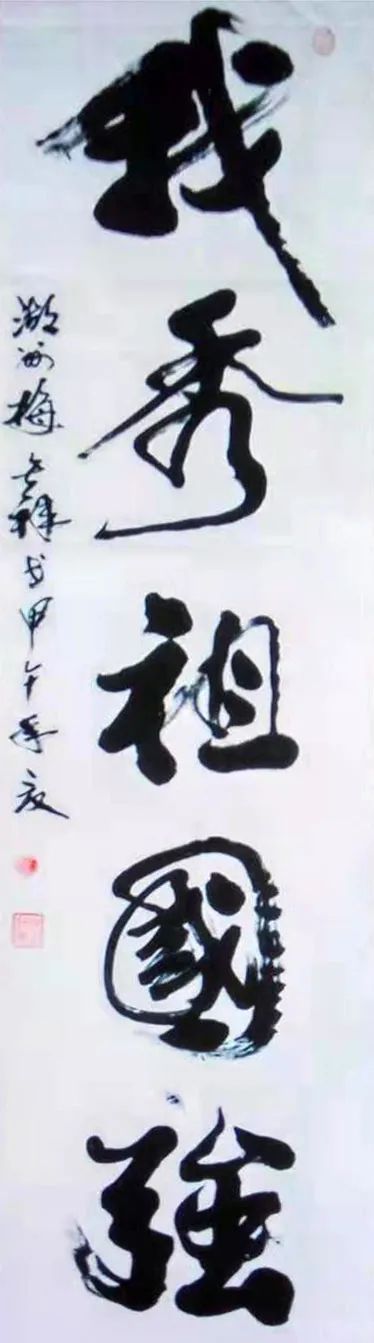 我秀祖國強
湖州梅 祥書甲午年夏